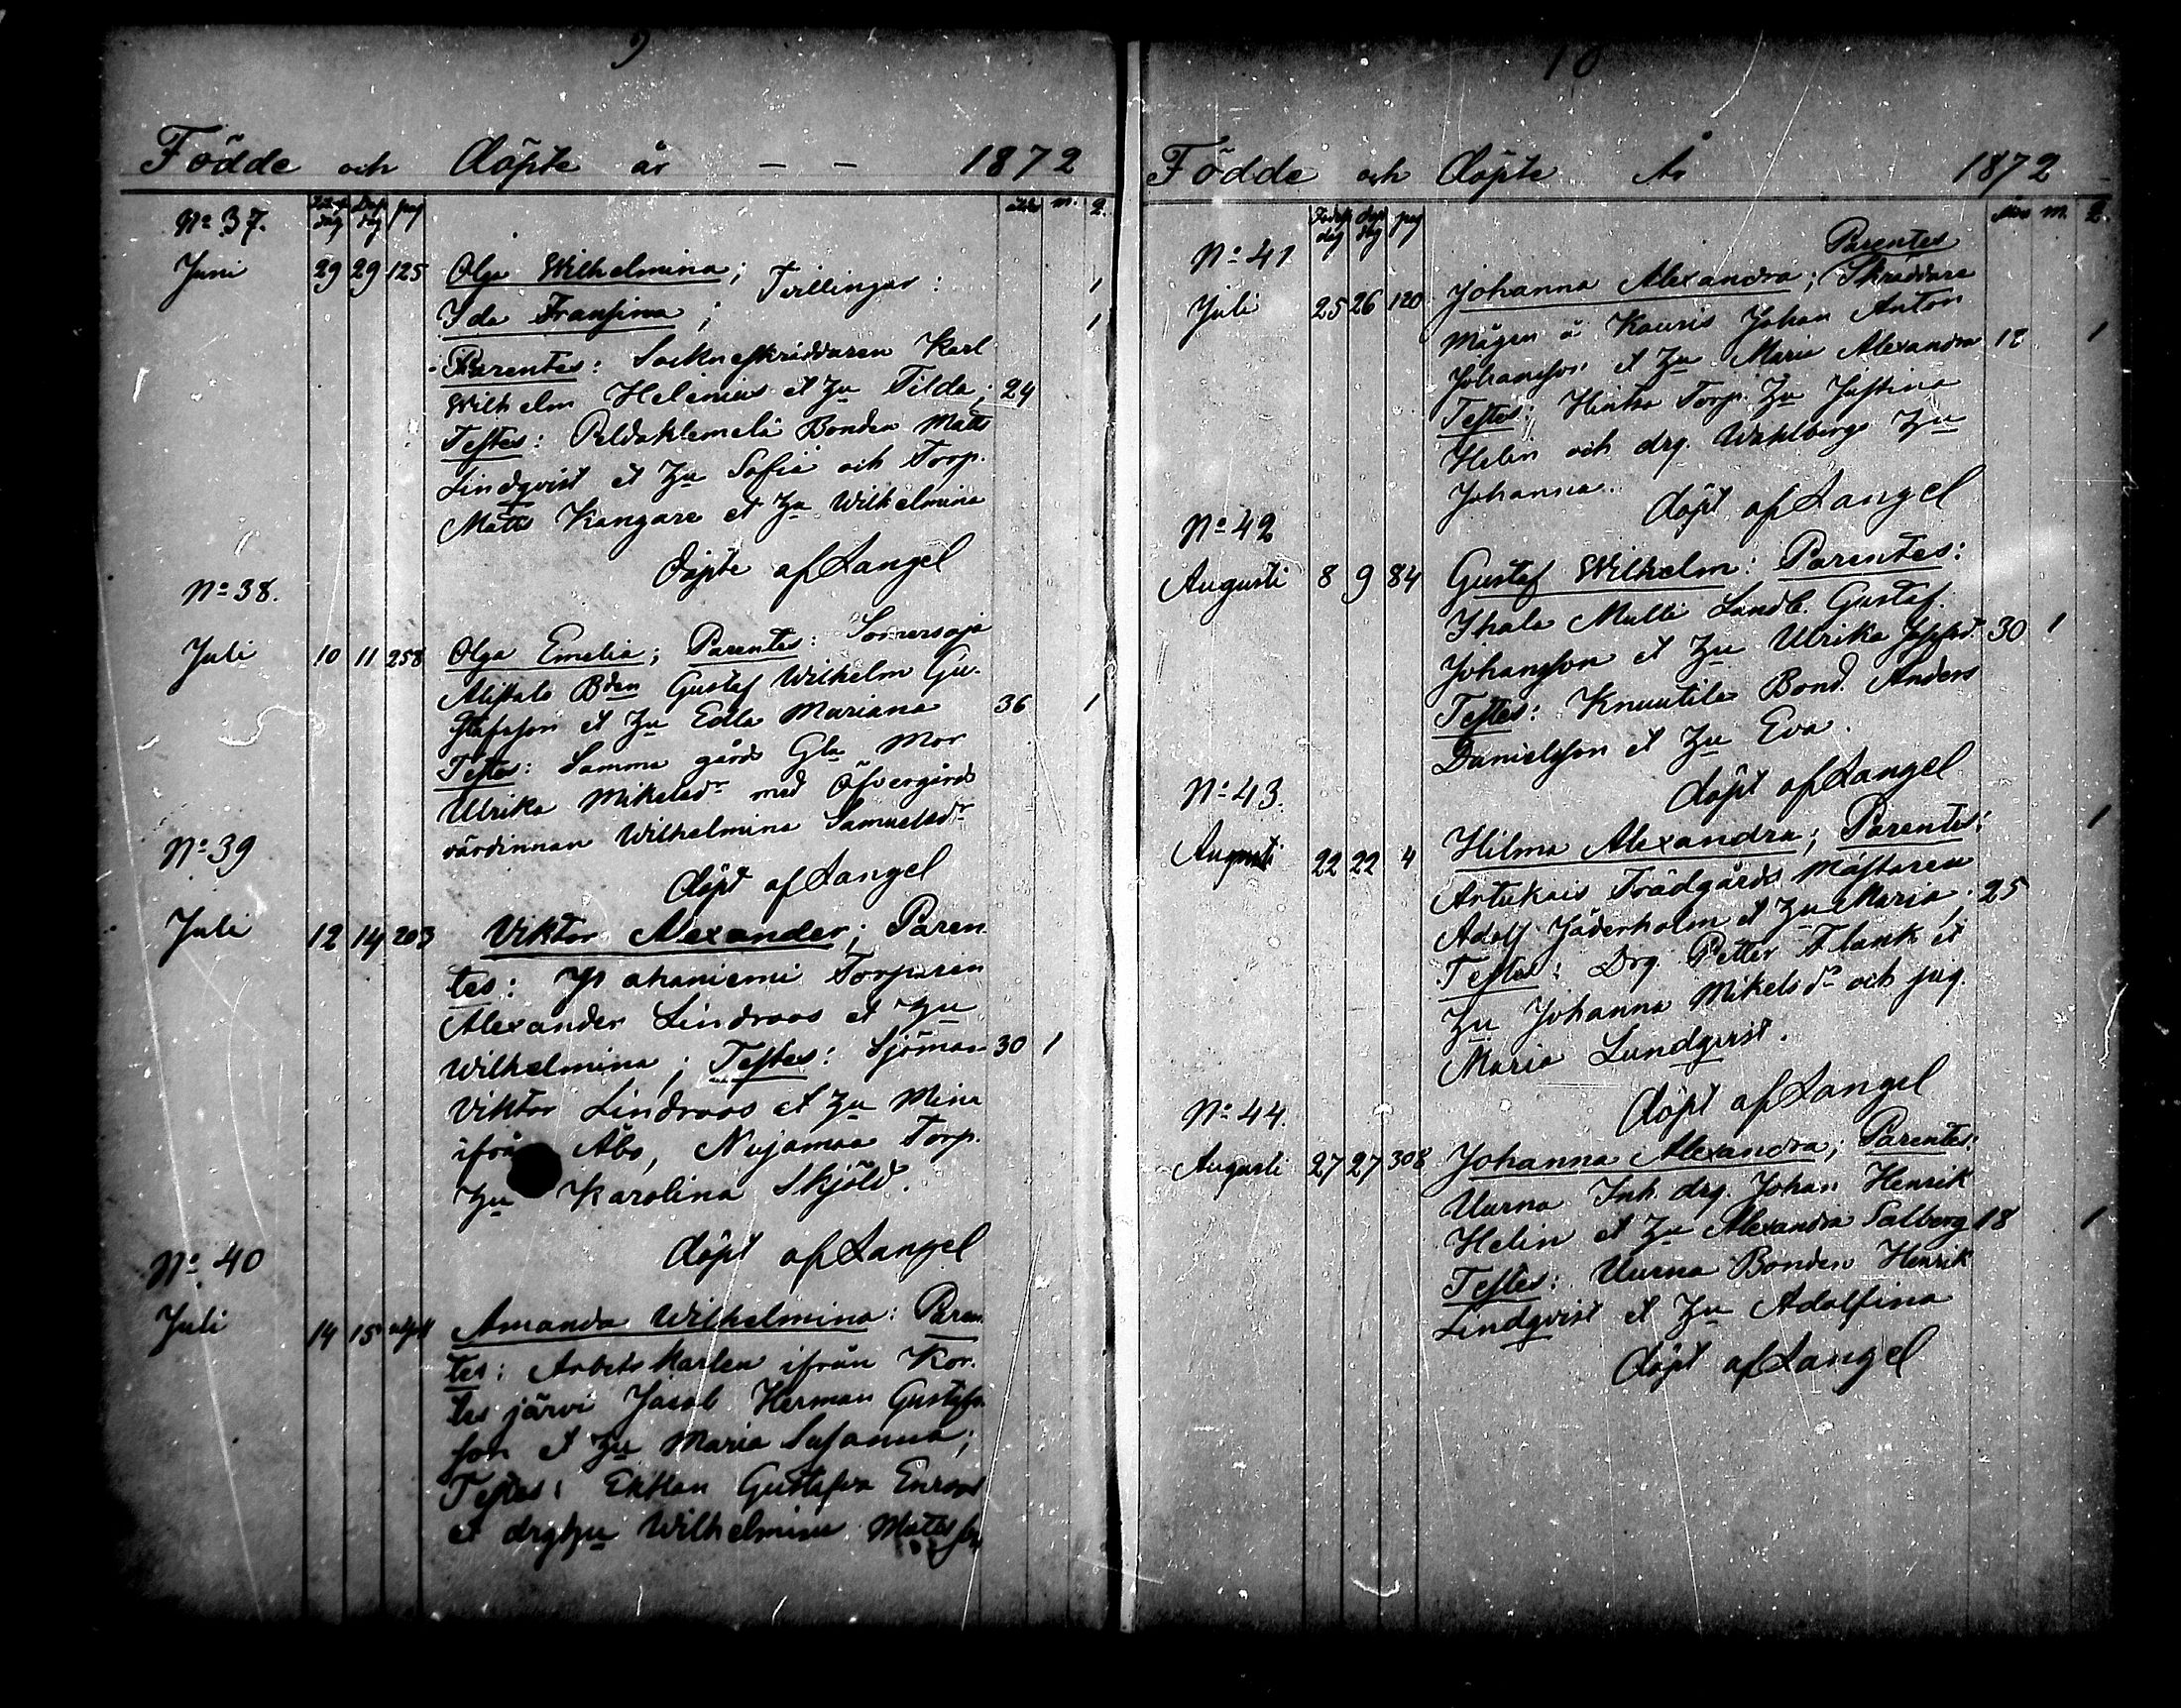 9
Födde och Döpte år - - 1872
No 37.
Juni 29 29 125 Olga Wilhelmina; 1
Ida Fransina; Tvillingar: 1
Parentes: Sockneskräddaren Karl
Wilhelm Helenius et Hu Tilda; 24
Testes: Peldoklemelä Bonden Matts
Lindqvist et Hu Sofia och Torp.
Matts Kangare et Hu Wilhelmina
Döpte af Langel
No 38.
Juli 10 11 258 Olga Emelia; Parentes: Somersoja
Alistalo Bden Gustaf Wilhelm Gu-
stafsson et Hu Edla Mariana 36 1
Testes: Samma gårds Gla Mor
Ulrika Mikelsdr med Öfvergårds
värdinnan Wilhelmina Samuelsdr
döpt af Langel
No 39
Juli 12 14 203 Viktor Alexander; Paren
tes: Torparen
Alexander Lindroos et Hu
Wilhelmina; Testes: Sjöman 30 1
Viktor Lindroos et Hu Mina
ifrån Åbo, Nujamaa Torp.
Hu Karolina Skjöld.
döpt af Langel
No 40
Juli 14 15 Amanda Wilhelmina: Paren
tes: Arbets Karlen ifrån Kor-
tes järvi Jacob Herman Gustafs
son et Hu Maria Susanna;
Testes: Gustafva
et drg Hu Wilhelmina
10
Födde och Döpte År 1872
No 41 Parentes
Juli 25 26 120 Johanna Alexandra; Skräddare
Mågen å Kauris Johan Anton
Johansson et Hu Maria Alexandra 1
Testes: Hintsa Torp. Hu Justina
Helin och drg. Wahlbergs Hu
Johanna.
döpt af Langel
No 42
Augusti 8 9 84 Gustaf Wilhelm: Parentes:
Ihala Mulli Landb. Gustaf
Johansson et Hu Ulrika 30 1
Testes: Knuutila Bond. Anders
Danielsson et Hu Eva.
döpt af Langel
No 43.
Augusti 22 22 4 Hilma Alexandra; Parentes: 1
Artukais Trädgårds Mästaren
Adolf Jäderholm et Hu Maria; 25
Testes: Drg. Petter Flank et
Hu Johanna Mikelsdr och pig.
Maria Lundqvist.
döpt af Langel
No 44.
Augusti 27 27 308 Johanna Alexandra; Parentes:
Uurna Inh. drg. Johan Henrik
Helin et Hu Alexandra Salberg 18 1
Testes: Uurna Bonden Henrik
Lindqvist et Hu Adolfina
döpt af Langel